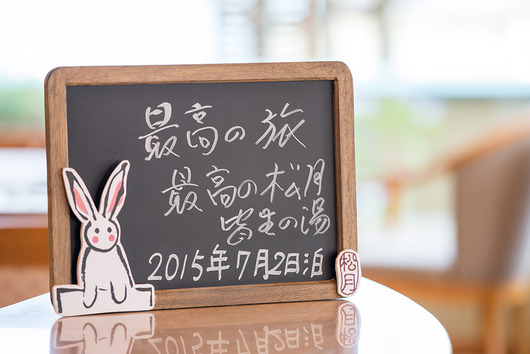 最高の旅
最高の松月
皆生の湯
2015年7月2日泊
松月